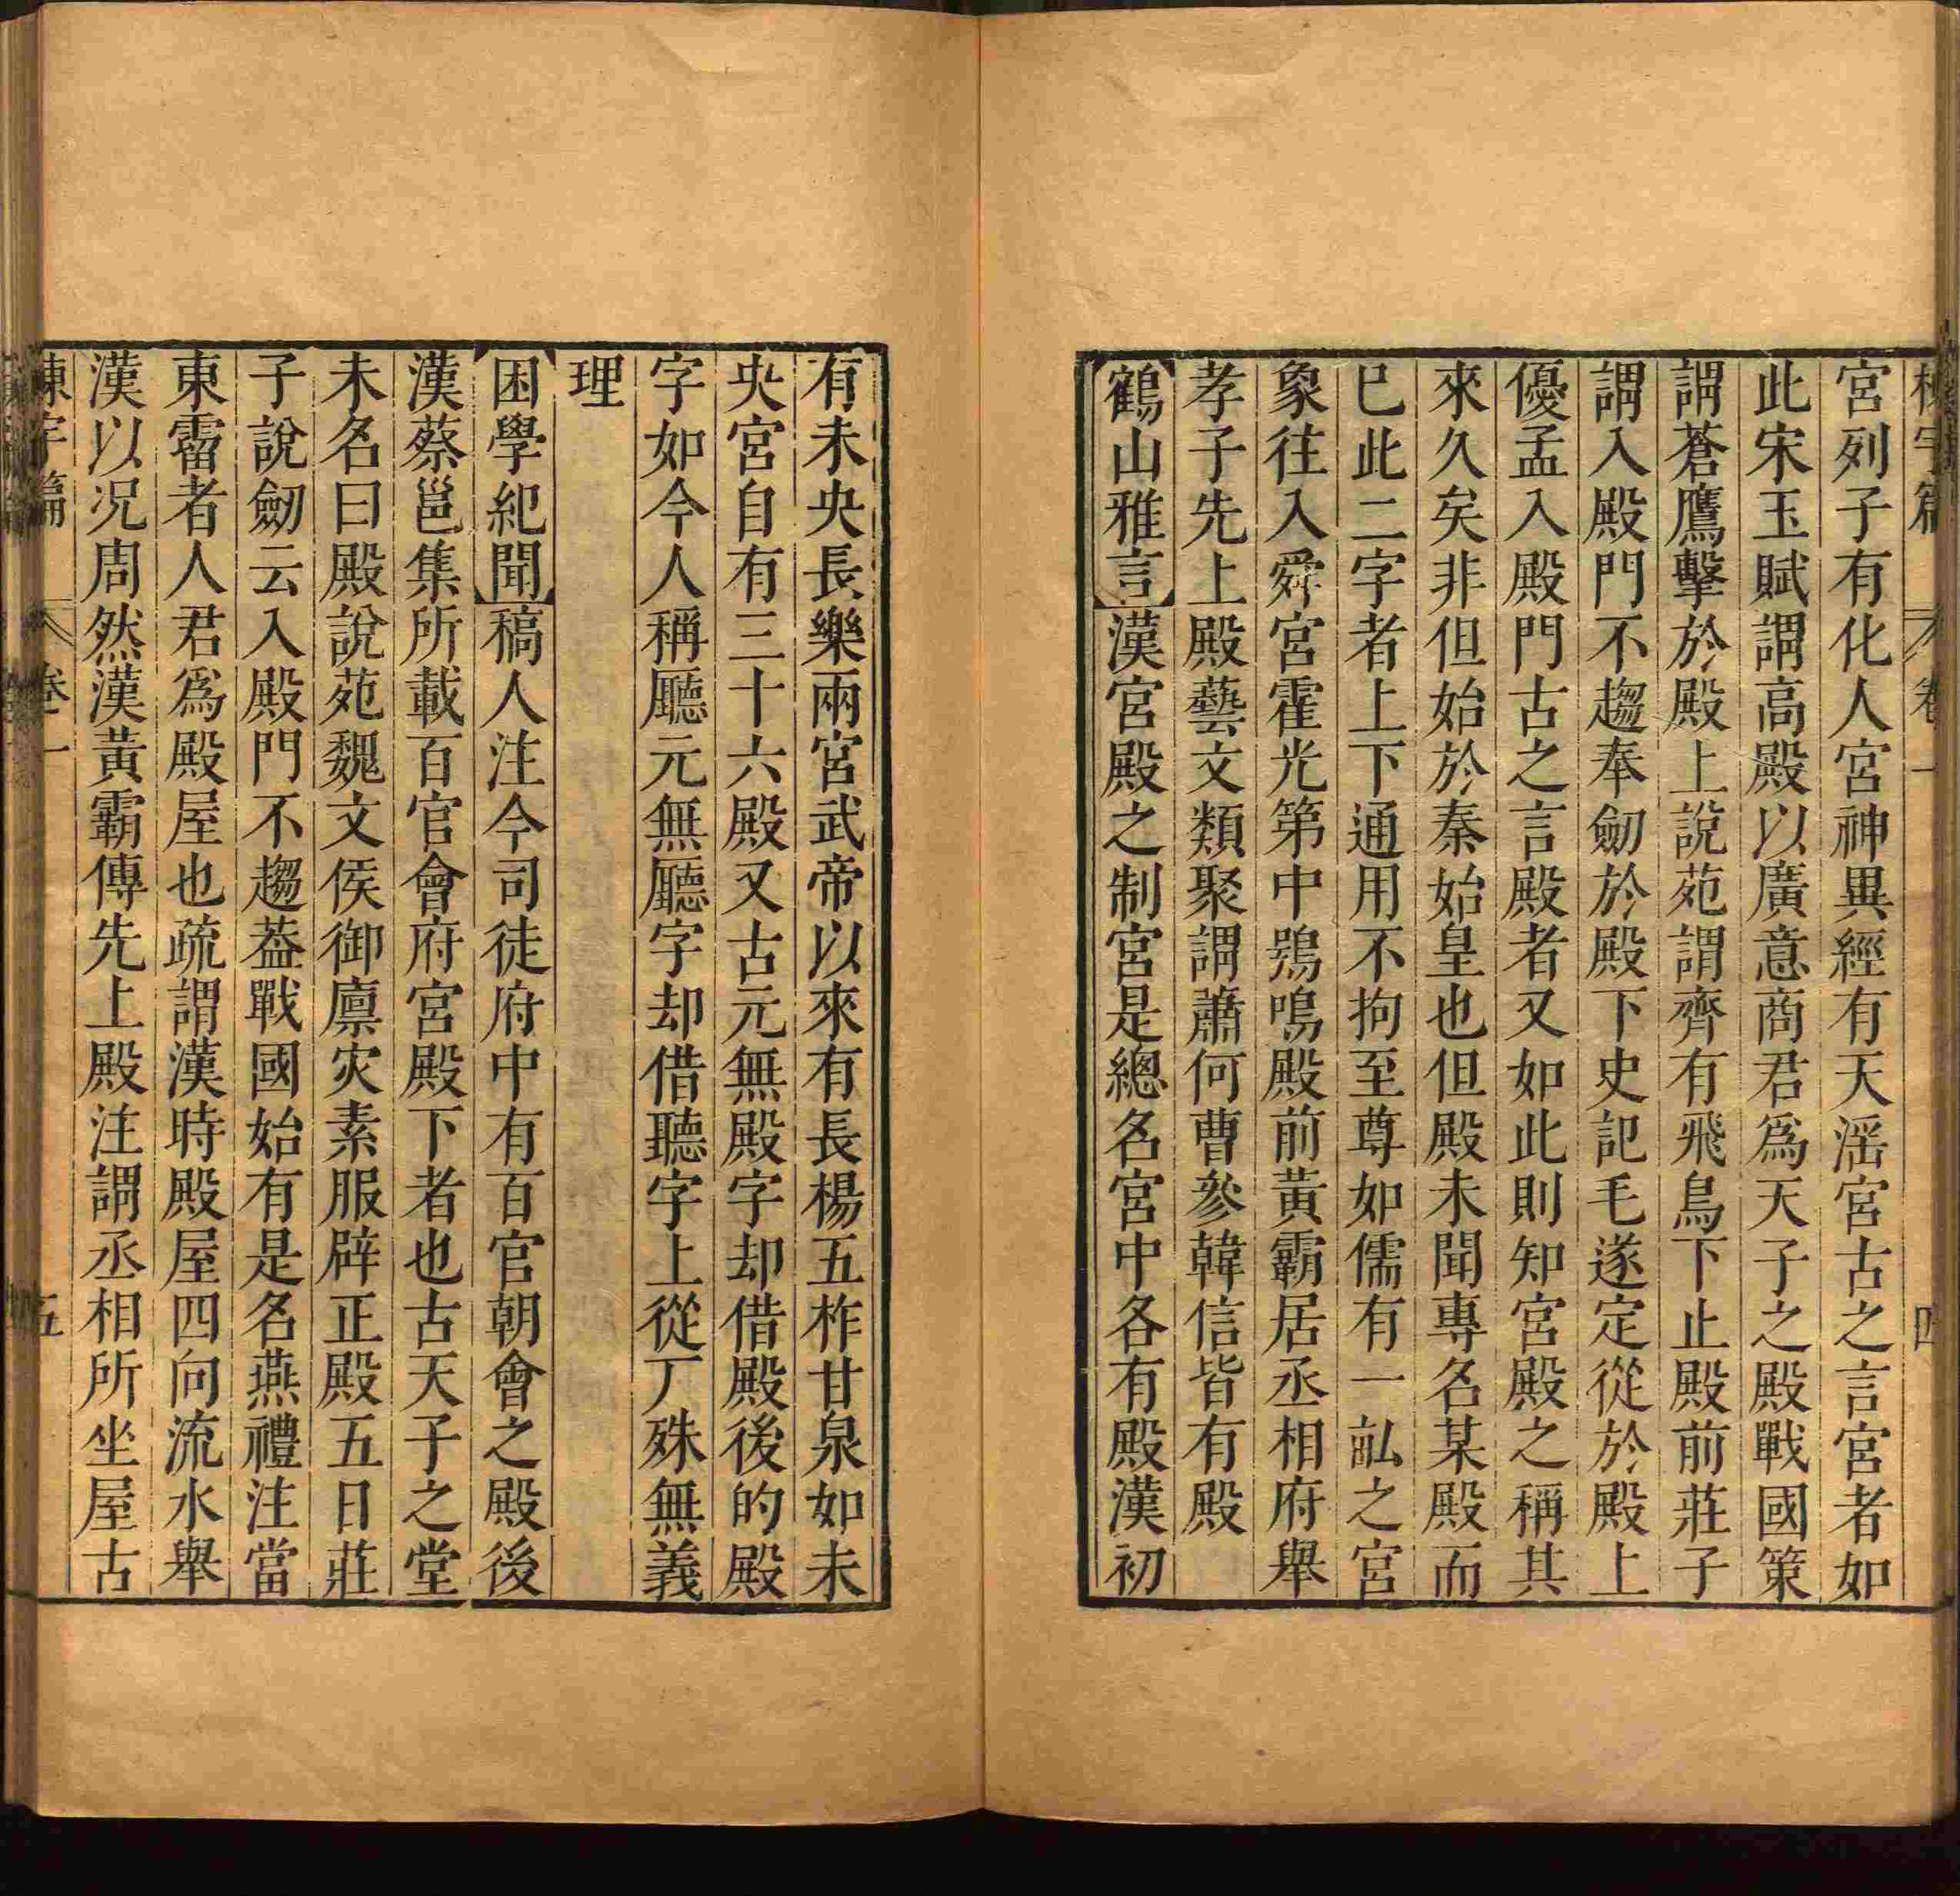 宮列子有化人宮神異經有天滛宮古之言宮者如
此宋玉賦謂高殿以廣意商君爲天子之殿戰國策
謂蒼鷹擊於殿上說苑謂齊有飛鳥下止殿前莊子
謂入殿門不趨奉劒於殿下史記毛遂定從於殿上
優孟入殿門古之言殿者又如此則知宮殿之稱其
來久矣非但始於秦始皇也但殿未聞專名某殿而
已此二字者上下通用不拘至尊如儒有一畝之宮
象往入舜宮霍光第中鴞鳴殿前黃霸居丞相府舉
孝子先上殿藝文類聚謂蕭何曹參韓信皆有殿
鶴山雅言漢宮殿之制宮是總名宮中各有殿漢初
有未央長樂兩宮武帝以來有長楊五柞甘泉如未
央宮自有三十六殿又古元無殿字却借殿後的殿
字如今人稱廳元無廳字却借聽字上從丆殊無義
理
困學紀聞稿人注今司徒府中有百官朝會之殿後
漢蔡邕集所載百官會府宮殿下者也古天子之堂
未名曰殿說苑魏文侯御廩灾素服辟正殿五日莊
子說劒云入殿門不趨葢戰國始有是名燕禮注當
東霤者人君爲殿屋也疏謂漢時殿屋四向流水舉
漢以况周然漢黃霸傳先上殿注謂丞相所坐屋古
棟宇篇 卷一 五